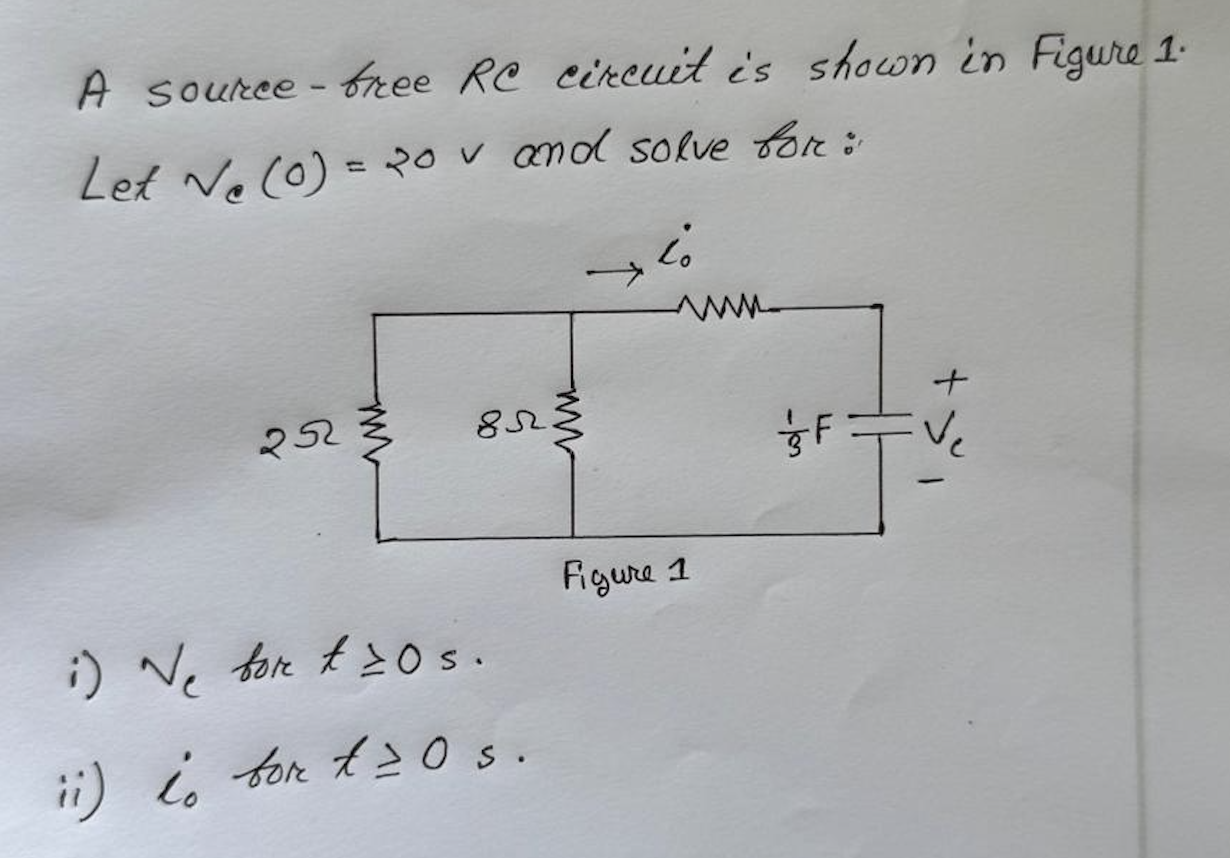 A source-free RC circuit is shown in Figure 1.
Let Vc (0) = 20 v and solve for:
→ i₀
2Ω
8Ω
1/3 F
+
Vc
-
Figure 1
i) Vc for t ≥ 0 s.
ii) i₀ for t ≥ 0 s.